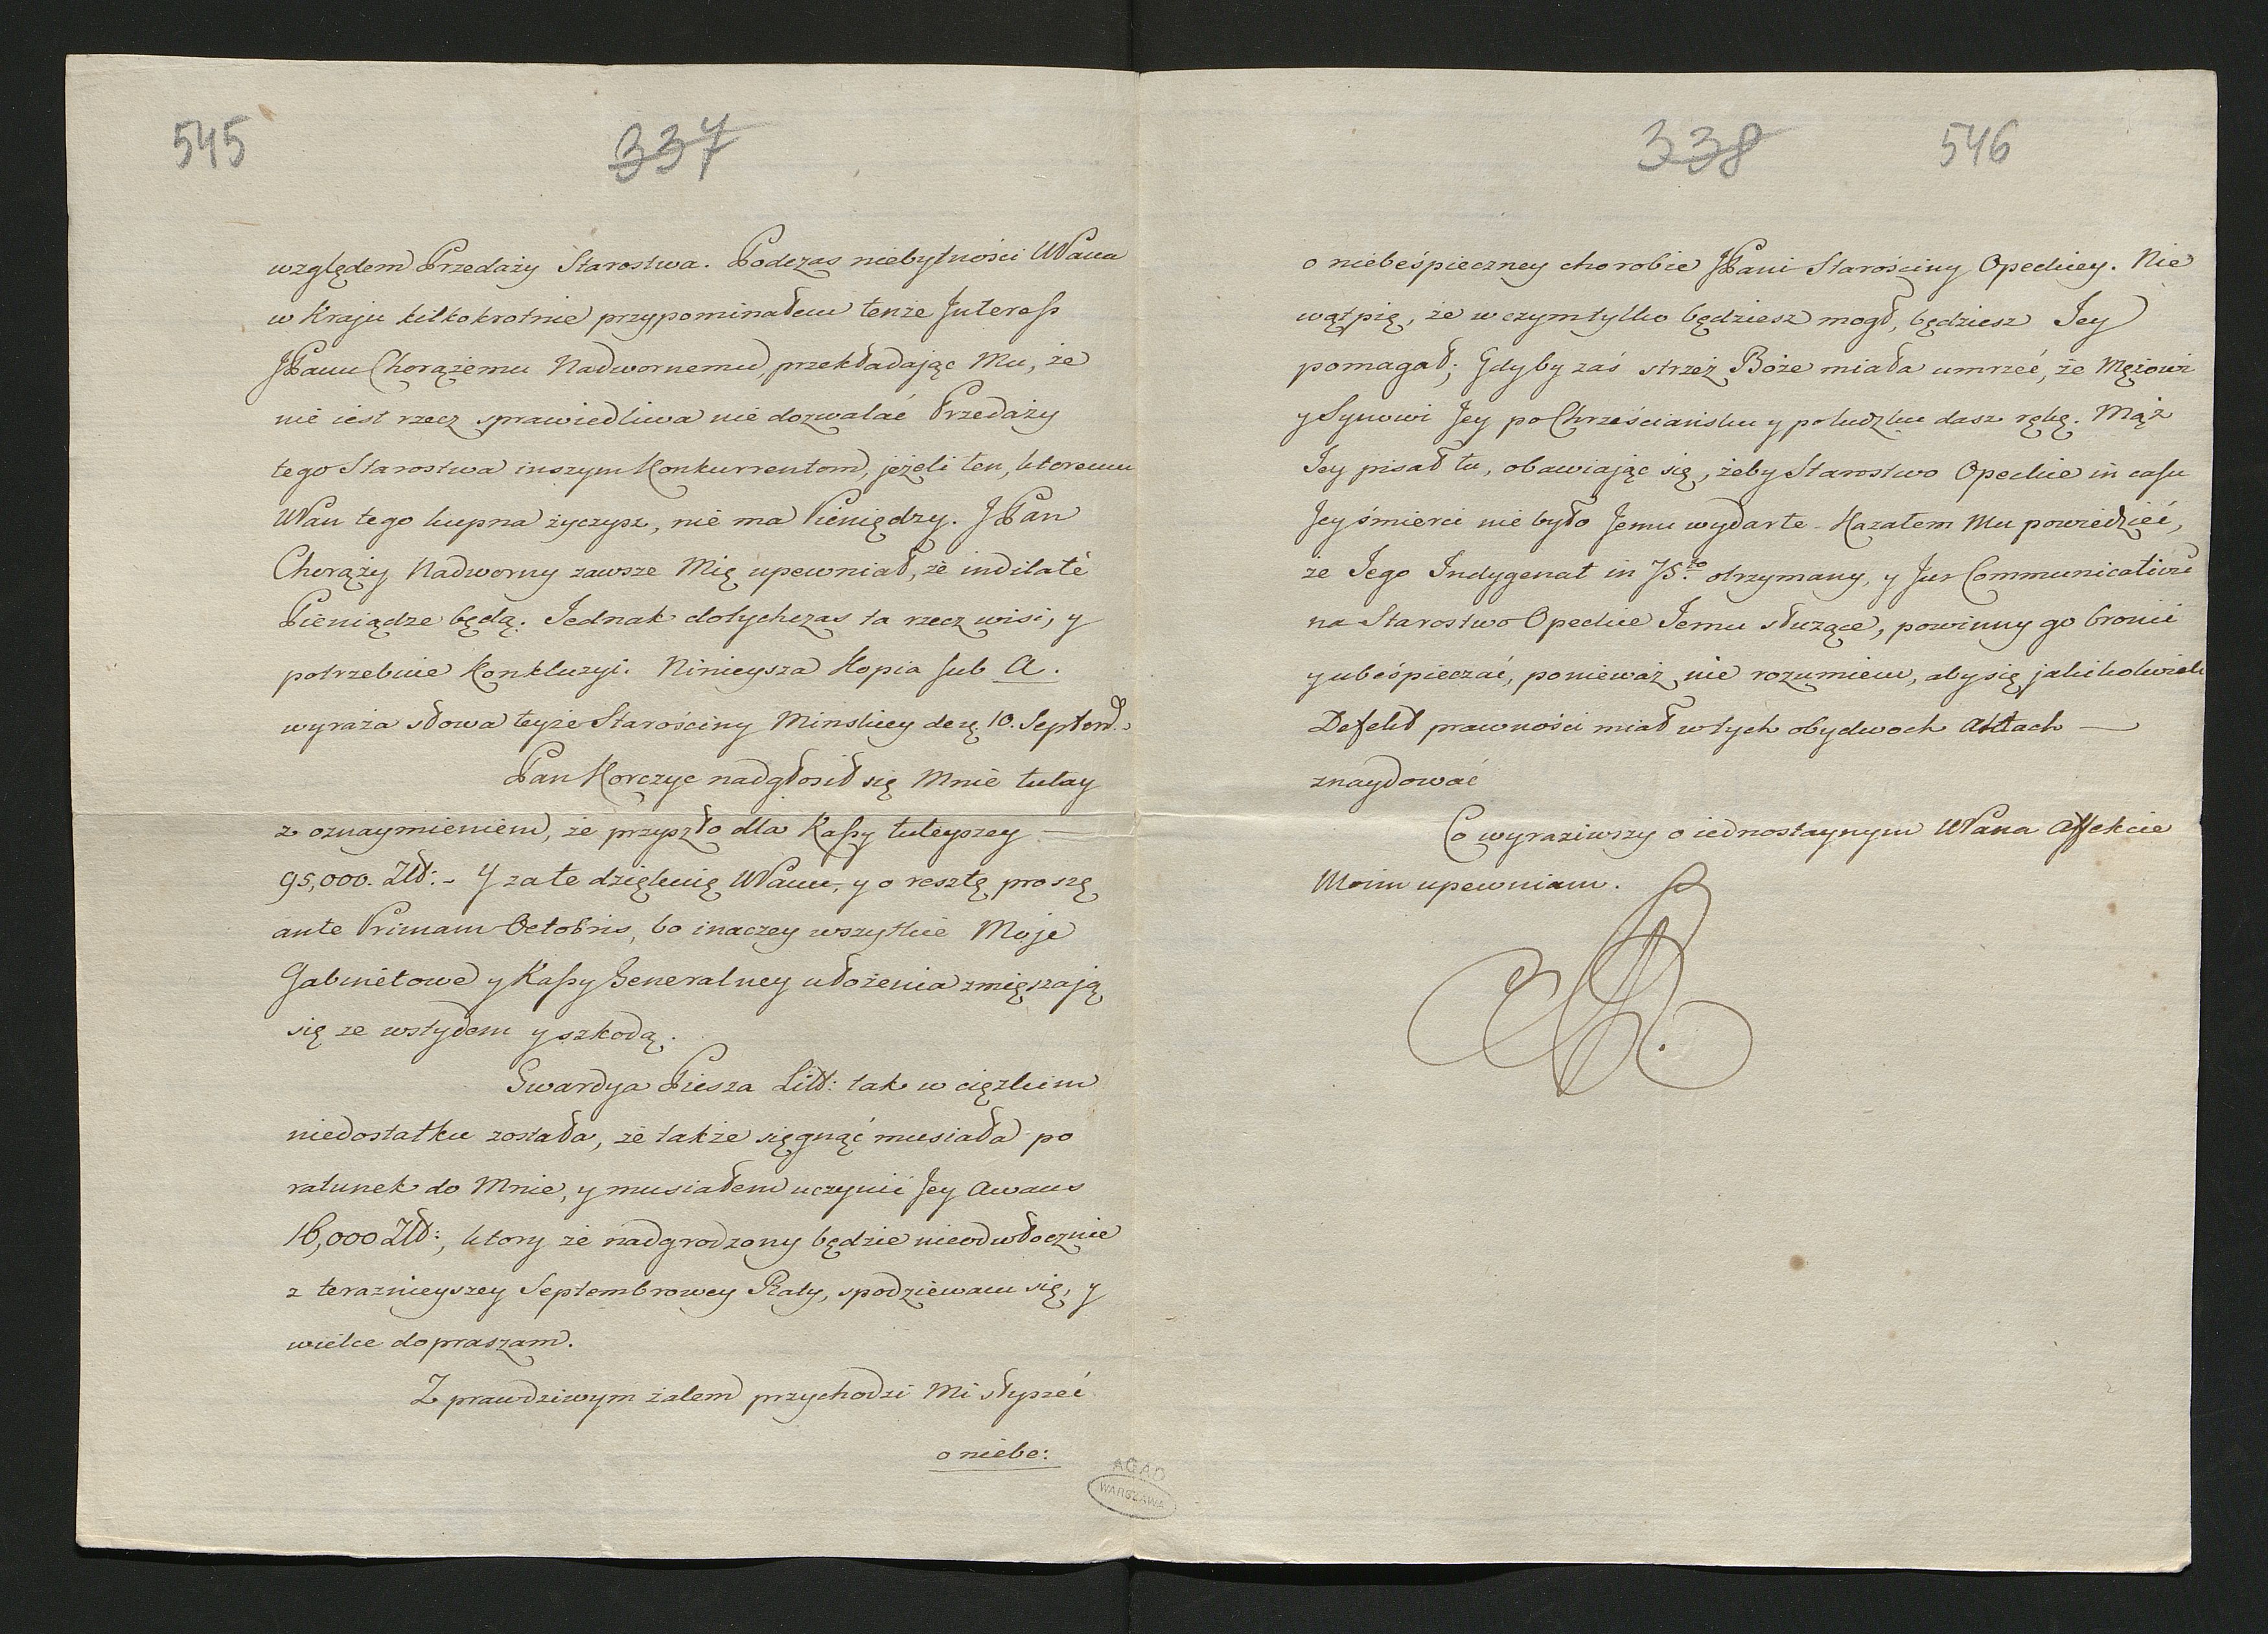 545
337
względem Przedaży Starostwa. Podczas niebytności WPana
w Kraju kilkokrotnie przypominałem tenże Interess
JPanu Chorążemu Nadwornemu, przekładając Mu, że
nie iest rzecz sprawiedliwa nie dozwalać Przedaży
tego Starostwa inszym Konkurrentom, jeżeli ten, ktoremu
WPan tego kupna życzysz, nie ma Pieniędzy. JPan
Chorąży Nadworny zawsze Mię upewniał, że indilatè
Pieniądze będą. Jednak dotychczas ta rzecz wisi, y
potrzebuie Konkluzyi. Ninieysza Kopia sub A.
wyraża słowa teyże Starościny Minskiey de 10.
Pan Korczyc nadgłosił się Mnie tutay
z oznaymieniem, że przyszło dla Kassy tuteyszey
95,000. Złł:- Y za te dziękuię WPanu, y o resztę proszę
ante Primam Octobris, bo inaczey wszytkie Moje
Gabinetowe y Kassy Generalney ułożenia zmięszają
się ze wstydem y szkodą.
Gwardya Piesza Litt: tak w cięzkim
niedostatku została, że także sięgnąć musiała po
ratunek do Mnie, y musiałem uczynić Jey Awans
16,000 Złł:, ktory że nadgrodzony będzie nieodwłocznie
z teraznieyszey Septembrowey Raty, spodziewam się, y
wielce dopraszam.
Z prawdziwym żalem przychodzi Mi słyszeć
o niebe:
AGAD
WARSZAWA
338
546
o niebeśpieczney chorobie JPani Starościny Opeckiey. Nie
wątpię, że w czym tylko będziesz mogł, będziesz Jey
pomagał; Gdyby zaś strzeż Boże miała umrzeć, że Mężowi
y Synowi Jey po Chrześciańsku y po ludzku dasz rękę. Mąż
Jey pisał tu, obawiając się, żeby Starostwo Opeckie in casu
Jey śmierci nie było Jemu wydarte. Kazałem Mu powiedzieć,
że Jego Indygenat in 75.to otrzymany, y Jus Communicativu
na Starostwo Opeckie Jemu służące, powinny go bronić
y ubeśpieczać, ponieważ nie rozumiem, aby się jakikolwiek
Defekt prawności miał w tych obydwoch Aktach
znaydować
Co wyraziwszy o iednostaynym WPana Affekcie
Moim upewniam.